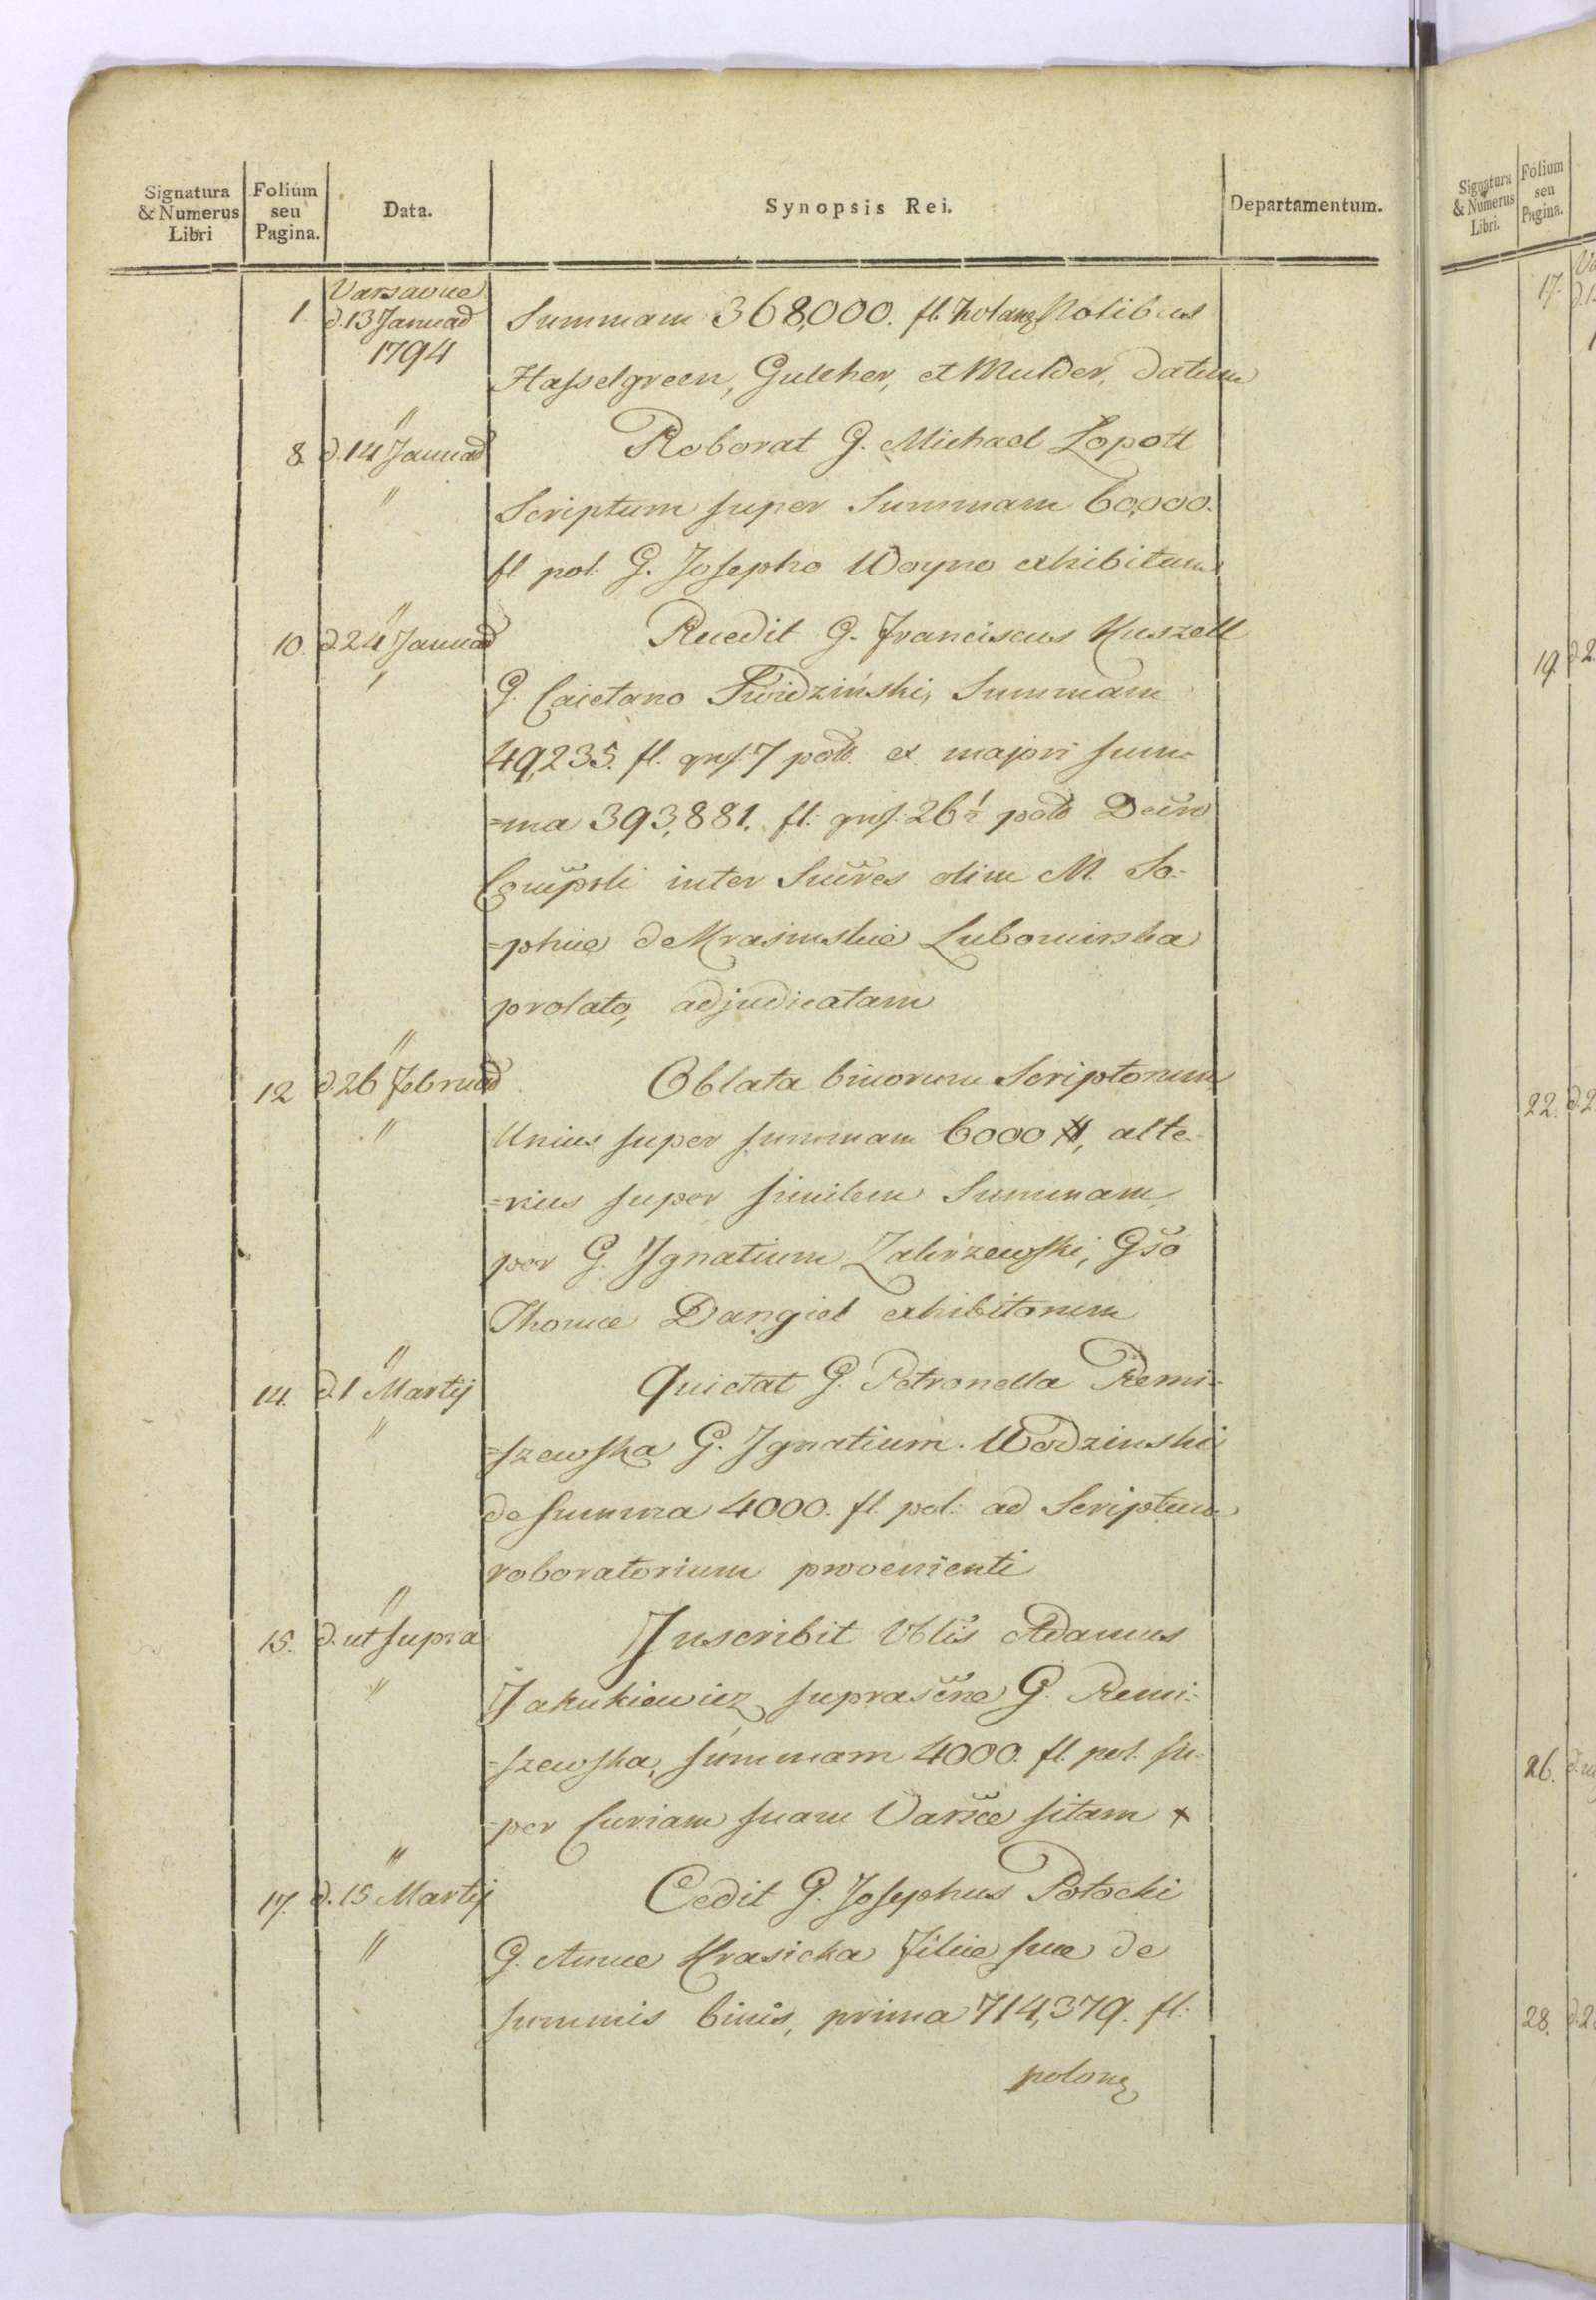 Signatura & Numerus Libri
Folium seu Pagina.
Data.
Synopsis Rei.
Departamentum.
Varsaviae
1. d. 13 Januarÿ Summam 368,000. fl. holang Nobilibus
1794
Hasselgreen, Gulcher, et Mulder, datum
"
8. d. 14 Januarÿ Roborat G. Michael Lopott
" Scriptum super Summam 60,000.
fl. pol: G. Josepho Woyno exhibitum
"
10. d. 24 Januarÿ Recedit G. Franciscus Kuszell
" G. Caietano Swidziński, Summam
49,235. fl. grs. 7 poll. ex majori sum=
=ma 393,881. fl: grs: 26½ poll
inter olim M. So=
=phiae de Krasinskie Lubomirska
prolato, adjudicatam
"
12 d. 26 Februarÿ Oblata binorum Scriptorum
" Unius super summam 6000 #, alte=
=rius super similem Summam,
per G. Ignatium Zakrzewski, Gso
Thomae Dangiel exhibitorum
"
14. d. 1 Martij Quietat G. Petronella Remi=
" =szewska G. Ignatium Wodzinski
de summa 4000. fl. pol: ad Scriptum
roboratorium provenienti
"
15. d. ut supra Inscribit Nblis Adamus
" Jakukiewicz G. Remi=
=szewska, summam 4000. fl. pol. su=
=per Curiam suam Varsce sitam x
"
17. d. 15 Martij Cedit G. Josephus Potocki
" G. Annae Krasicka Filiae suae de
summis binis, prima 714,379. fl:
polong
Signatura & Numerus Libri.
Folium seu Pagina.
17.
19.
22.
26.
28.